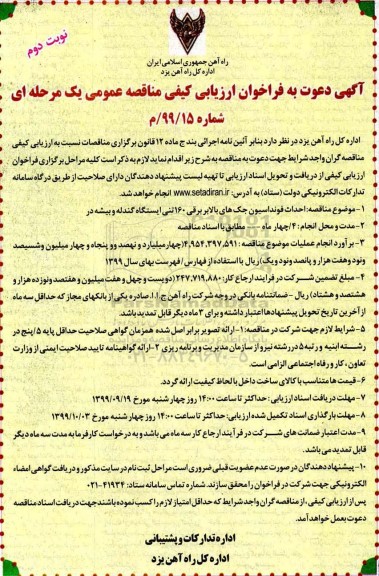 نوبت دوم
راه آهن جمهوری اسلامی ایران
اداره کل راه آهن یزد
آگهی دعوت به فراخوان ارزیابی کیفی مناقصه عمومی یک مرحله ای
شماره ۹۹/۱۵/م
اداره کل راه آهن یزد در نظر دارد بنابر آئین نامه اجرائی بند ج ماده ۱۲ قانون برگزاری مناقصات نسبت به ارزیابی کیفی
مناقصه گران واجد شرایط جهت دعوت به مناقصه به شرح زیر اقدام نماید لازم به ذکر است کلیه مراحل برگزاری فراخوان
ارزیابی کیفی از دریافت و تحویل اسناد ارزیابی تا تهیه لیست پیشنهاد دهندگان دارای صلاحیت از طریق درگاه سامانه
تدارکات الکترونیکی دولت (ستاد) به آدرس: www.setadiran.ir انجام خواهد شد.
۱- موضوع مناقصه: احداث فونداسیون جک های بالابر برقی ۱۶۰ تنی ایستگاه گندله و بیشه در
۲- مدت و محل انجام : ۴ / چهار ماه مطابق با اسناد مناقصه
۳- برآورد انجام عملیات موضوع مناقصه : ۴,۹۵۴,۳۹۷,۵۹۱ (چهار میلیارد و نهصد و پنجاه و چهار میلیون و سیصد
و نود و هفت هزار و پانصد و نود و یک) ریال با استفاده از فهارس / فهرست بهای سال ۱۳۹۹
۴- مبلغ تضمین شرکت در فرایند ارجاع کار: ۲۴۷,۷۱۹,۸۸۰ (دویست و چهل و هفت میلیون و هفتصد و نوزده هزار و
هشتصد و هشتاد) ریال - ضمانتنامه بانکی در وجه شرکت راه آهن ج.ا.ا. صادره یکی از بانکهای مجاز که حداقل سه ماه
از آخرین تاریخ تحویل پیشنهادها اعتبار داشته و برای ۳ ماه دیگر قابل تمدید باشد.
۵- شرایط لازم جهت شرکت در مناقصه: ۱- ارائه تصویر برابر اصل شده همزمان گواهی صلاحیت حداقل پایه ۵/پنج در
رشته ابنیه و رتبه ۵ در رشته نیرو از سازمان مدیریت و برنامه ریزی ۲- ارائه گواهینامه تایید صلاحیت ایمنی از وزارت
تعاون، کار و رفاه اجتماعی الزامی است.
۶- قیمت ها متناسب با کالای ساخت داخل با لحاظ کیفیت ارائه گردد.
۷- مهلت دریافت اسناد ارزیابی : حداکثر تا ساعت ۱۴:۰۰ روز چهارشنبه مورخ ۱۳۹۹/۰۹/۱۹
۸- مهلت بارگذاری اسناد تکمیل شده ارزیابی: حداکثر تا ساعت ۱۴:۰۰ روز چهارشنبه مورخ ۱۳۹۹/۱۰/۰۳
۹- مدت اعتبار ضمانت های شرکت در فرآیند ارجاع کار سه ماه می باشد و به درخواست کارفرما به مدت سه ماه دیگر
قابل تمدید می باشد.
۱۰- پیشنهاد دهندگان در صورت عدم عضویت قبلی ضروری است مراحل ثبت نام در سایت مذکور و دریافت گواهی امضاء
الکترونیکی جهت شرکت در فراخوان را محقق سازند. شماره تماس سامانه ستاد: ۴۱۹۳۴-۰۲۱
پس از ارزیابی کیفی، از مناقصه گران واجد شرایط که حداقل امتیاز لازم را کسب نموده باشند جهت دریافت اسناد مناقصه
دعوت بعمل خواهد آمد.
اداره تدارکات و پشتیبانی
اداره کل راه آهن یزد